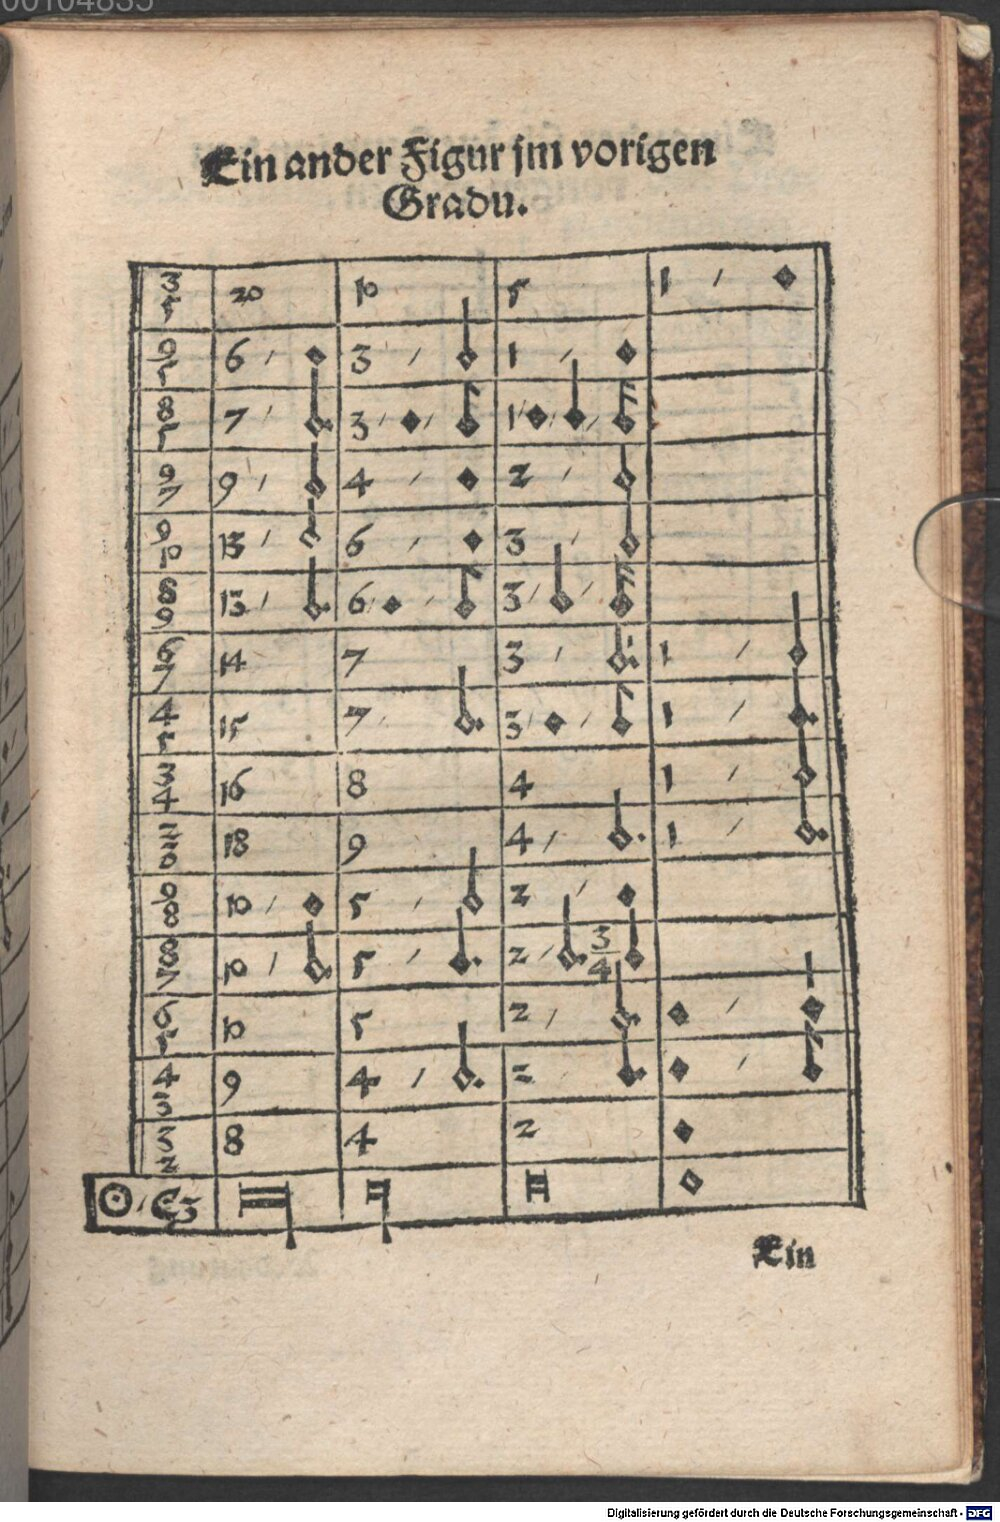 00104835
Ein ander Figur jm vorigen
Gradu.
20 10 5 1
6 3 1
7 3 1
9 4 2
13 6 3
13 6 3
14 7 3 1
15 7 3 1
3 4 16 8 4 1
18 9 4 1
9 8 10 5 2
8 7 10 5 2 3 4
10 5 2
9 4 2
3 2 8 4 2
Ein
Digitalisierung gefördert durch die Deutsche Forschungsgemeinschaft - DFG